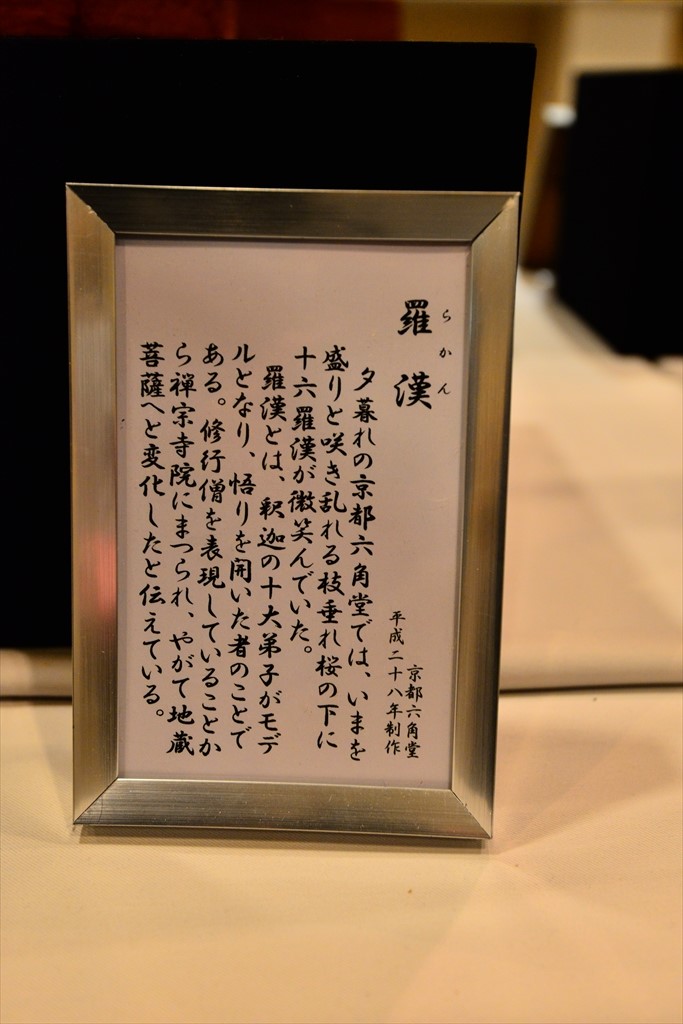 羅漢
らかん
京都六角堂
平成二十八年制作
夕暮れの京都六角堂では、いまを
盛りと咲き乱れる枝垂れ桜の下に
十六羅漢が微笑んでいた。
羅漢とは、釈迦の十大弟子がモデ
ルとなり、悟りを開いた者のことで
ある。修行僧を表現していることか
ら禅宗寺院にまつられ、やがて地蔵
菩薩へと変化したと伝えている。